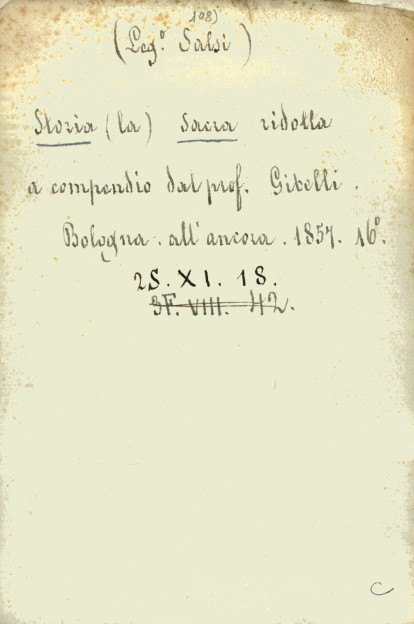 108)
(Leg.º Salsi)
Storia (la) Sacra ridotta
a compendio dal prof. Gibelli.
Bologna. all'ancora. 1857. 16º.
2S. XI. 18.
3F. VIII. 42.
C